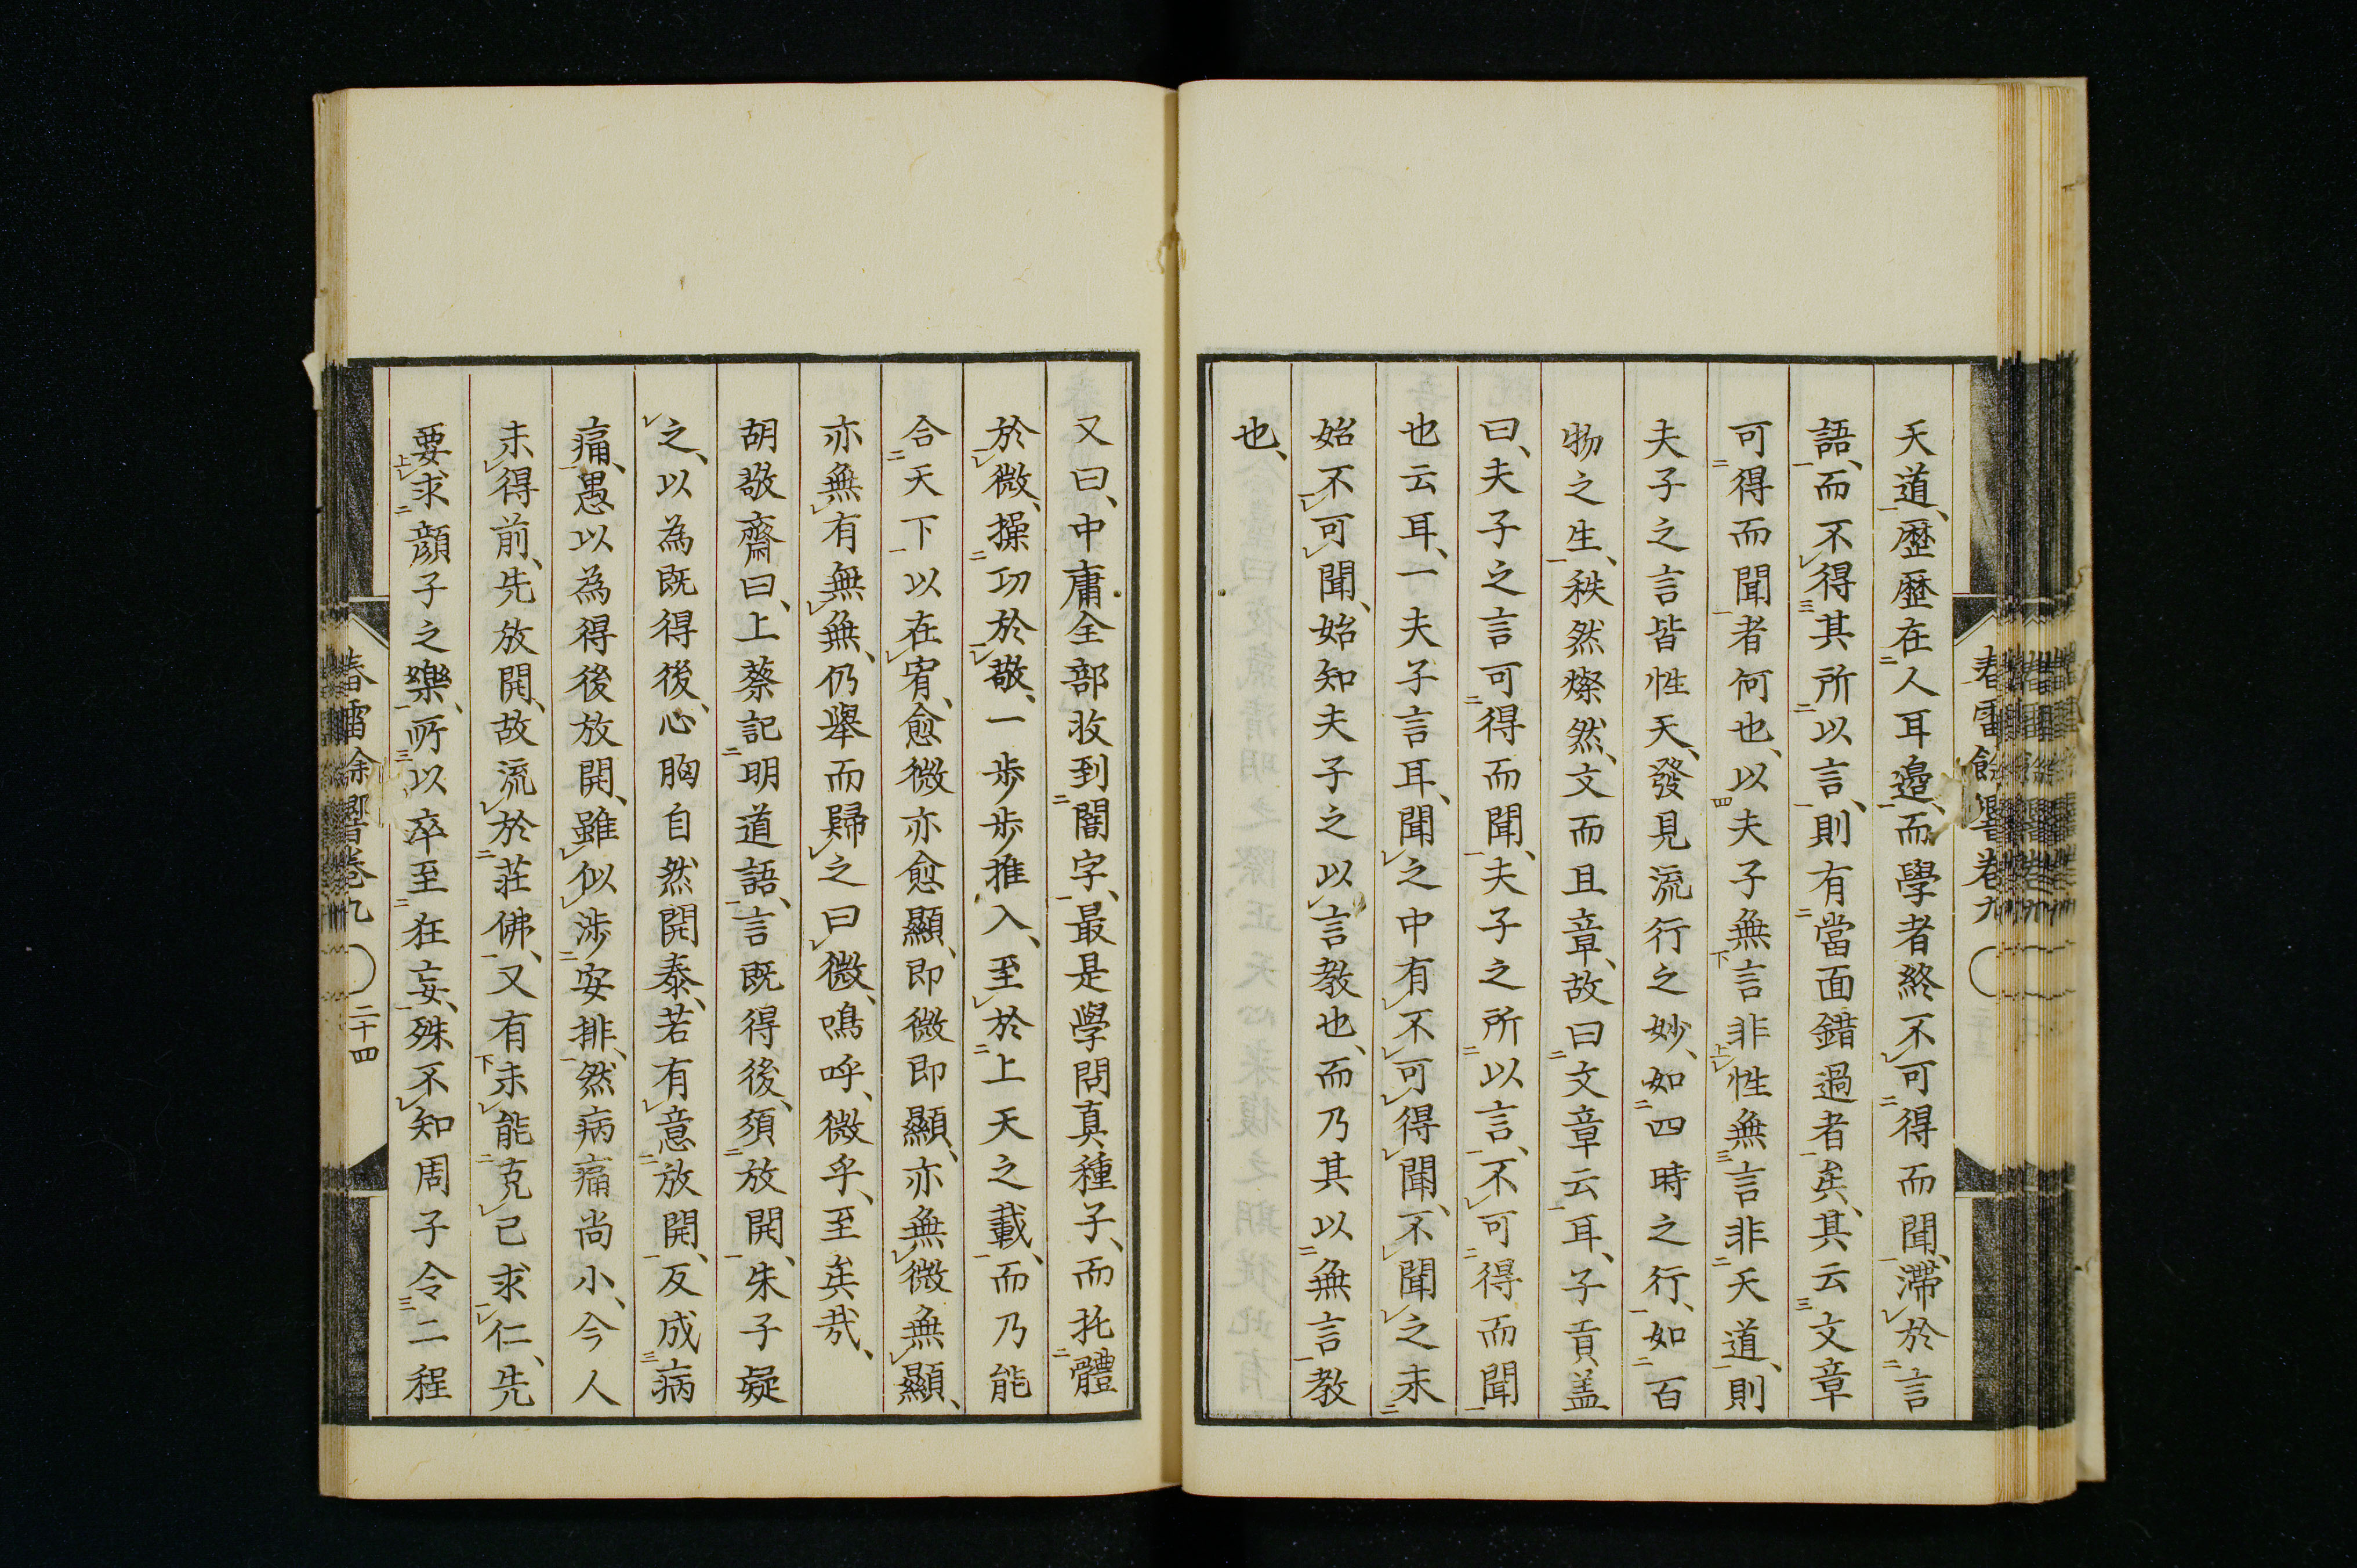 天道、歷歷在人耳邉、而學者終不可得而聞、滯於言
語、而不得其所以言、則有當面錯過者矣、其云文章
可得而聞者何也、以夫子無言非性無言非天道、則
夫子之言皆性天、發見流行之妙、如四時之行、如百
物之生、秩然燦然、文而且章、故曰文章云耳、子貢盖
曰、夫子之言可得而聞、夫子之所以言、不可得而聞
也云耳、一夫子言耳、聞之中有不可得聞、不聞之未
始不可聞、始知夫子之以言教也、而乃其以無言教
也、
又曰、中庸全部收到闇字、最是學問真種子、而托體
於微、操功於敬、一歩歩推入、至於上天之載、而乃能
合天下以在宥、愈微亦愈顯、即微即顯、亦無微無顯、
亦無有無無、仍舉而歸之曰微、嗚呼、微乎、至矣哉、
胡敬齋曰、上蔡記明道語、言既得後、須放開、朱子疑
之、以為既得後、心胸自然開泰、若有意放開、反成病
痛、愚以為得後放開、雖似涉安排、然病痛尚小、今人
未得前、先放開、故流於莊佛、又有未能克已求仁、先
要求顔子之樂、所以卒至狂妄、殊不知周子令二程
春雷餘響卷九 二十四